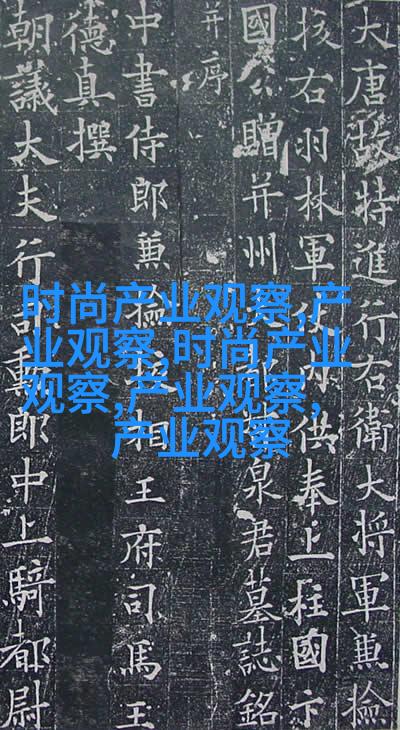 大唐故特進行右衛大將軍兼檢
校右羽林軍仗內供奉上柱國卞
國公贈并州大都督泉君墓誌銘
并序
中書侍郎兼檢校相王府司馬王
德真撰
朝議大夫行司勳郎中上騎都尉
时尚产业观察,产
业观察,时尚产业
观察,产业观察,
产业观察